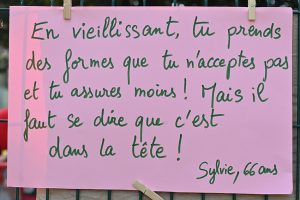 En vieillissant, tu prends
des formes que tu n'acceptes pas
et tu assures moins ! Mais il
faut se dire que c'est
dans la tête !
Sylvie, 66 ans